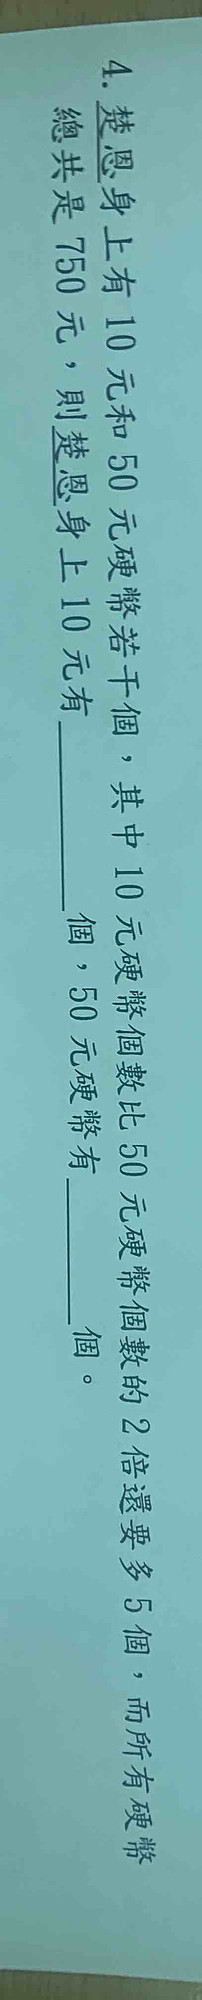 4. 楚恩身上有 10 元和 50 元硬幣若干個，其中 10 元硬幣個數比 50 元硬幣個數的 2 倍還要多 5 個，而所有硬幣
總共是 750 元，則楚恩身上 10 元有________個，50 元硬幣有________個。